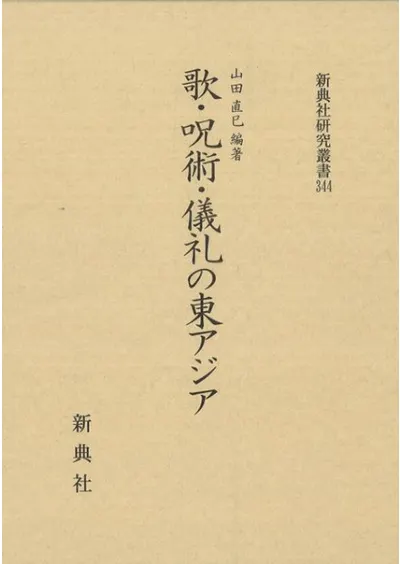 新典社研究叢書344
山田直巳 編著
歌・呪術・儀礼の東アジア
新典社